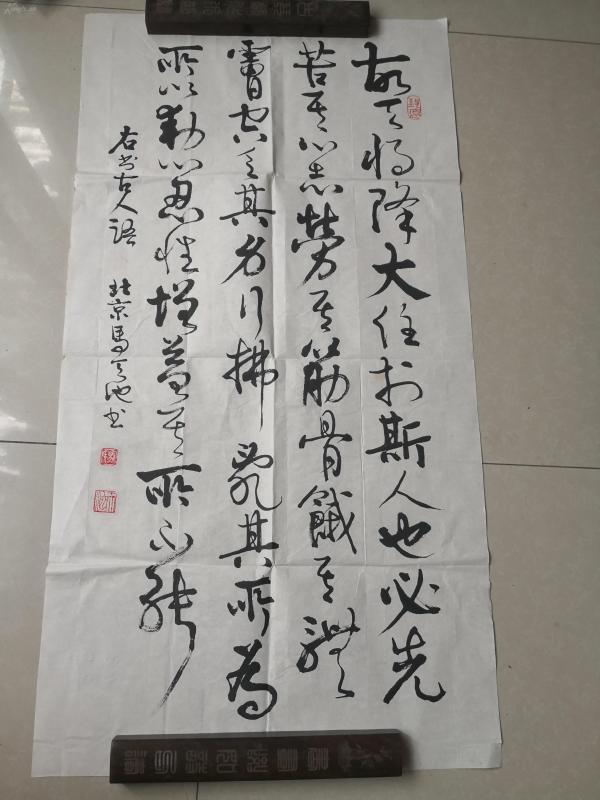 故天将降大任於斯人也必先
苦其心志勞其筋骨餓其體
膚空乏其身行拂亂其所為
所以動心忍性增益其所不能
右书古人語
北京馬天池书